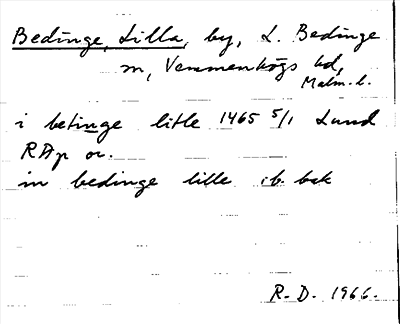 Bedinge, Lilla, by, L. Bedinge
m, Vemmenhögs hd,
Malm. l.
i betinge litle 1465 5/1 Lund
RAp or.
in bedinge lille ib. bak
R. D. 1966.